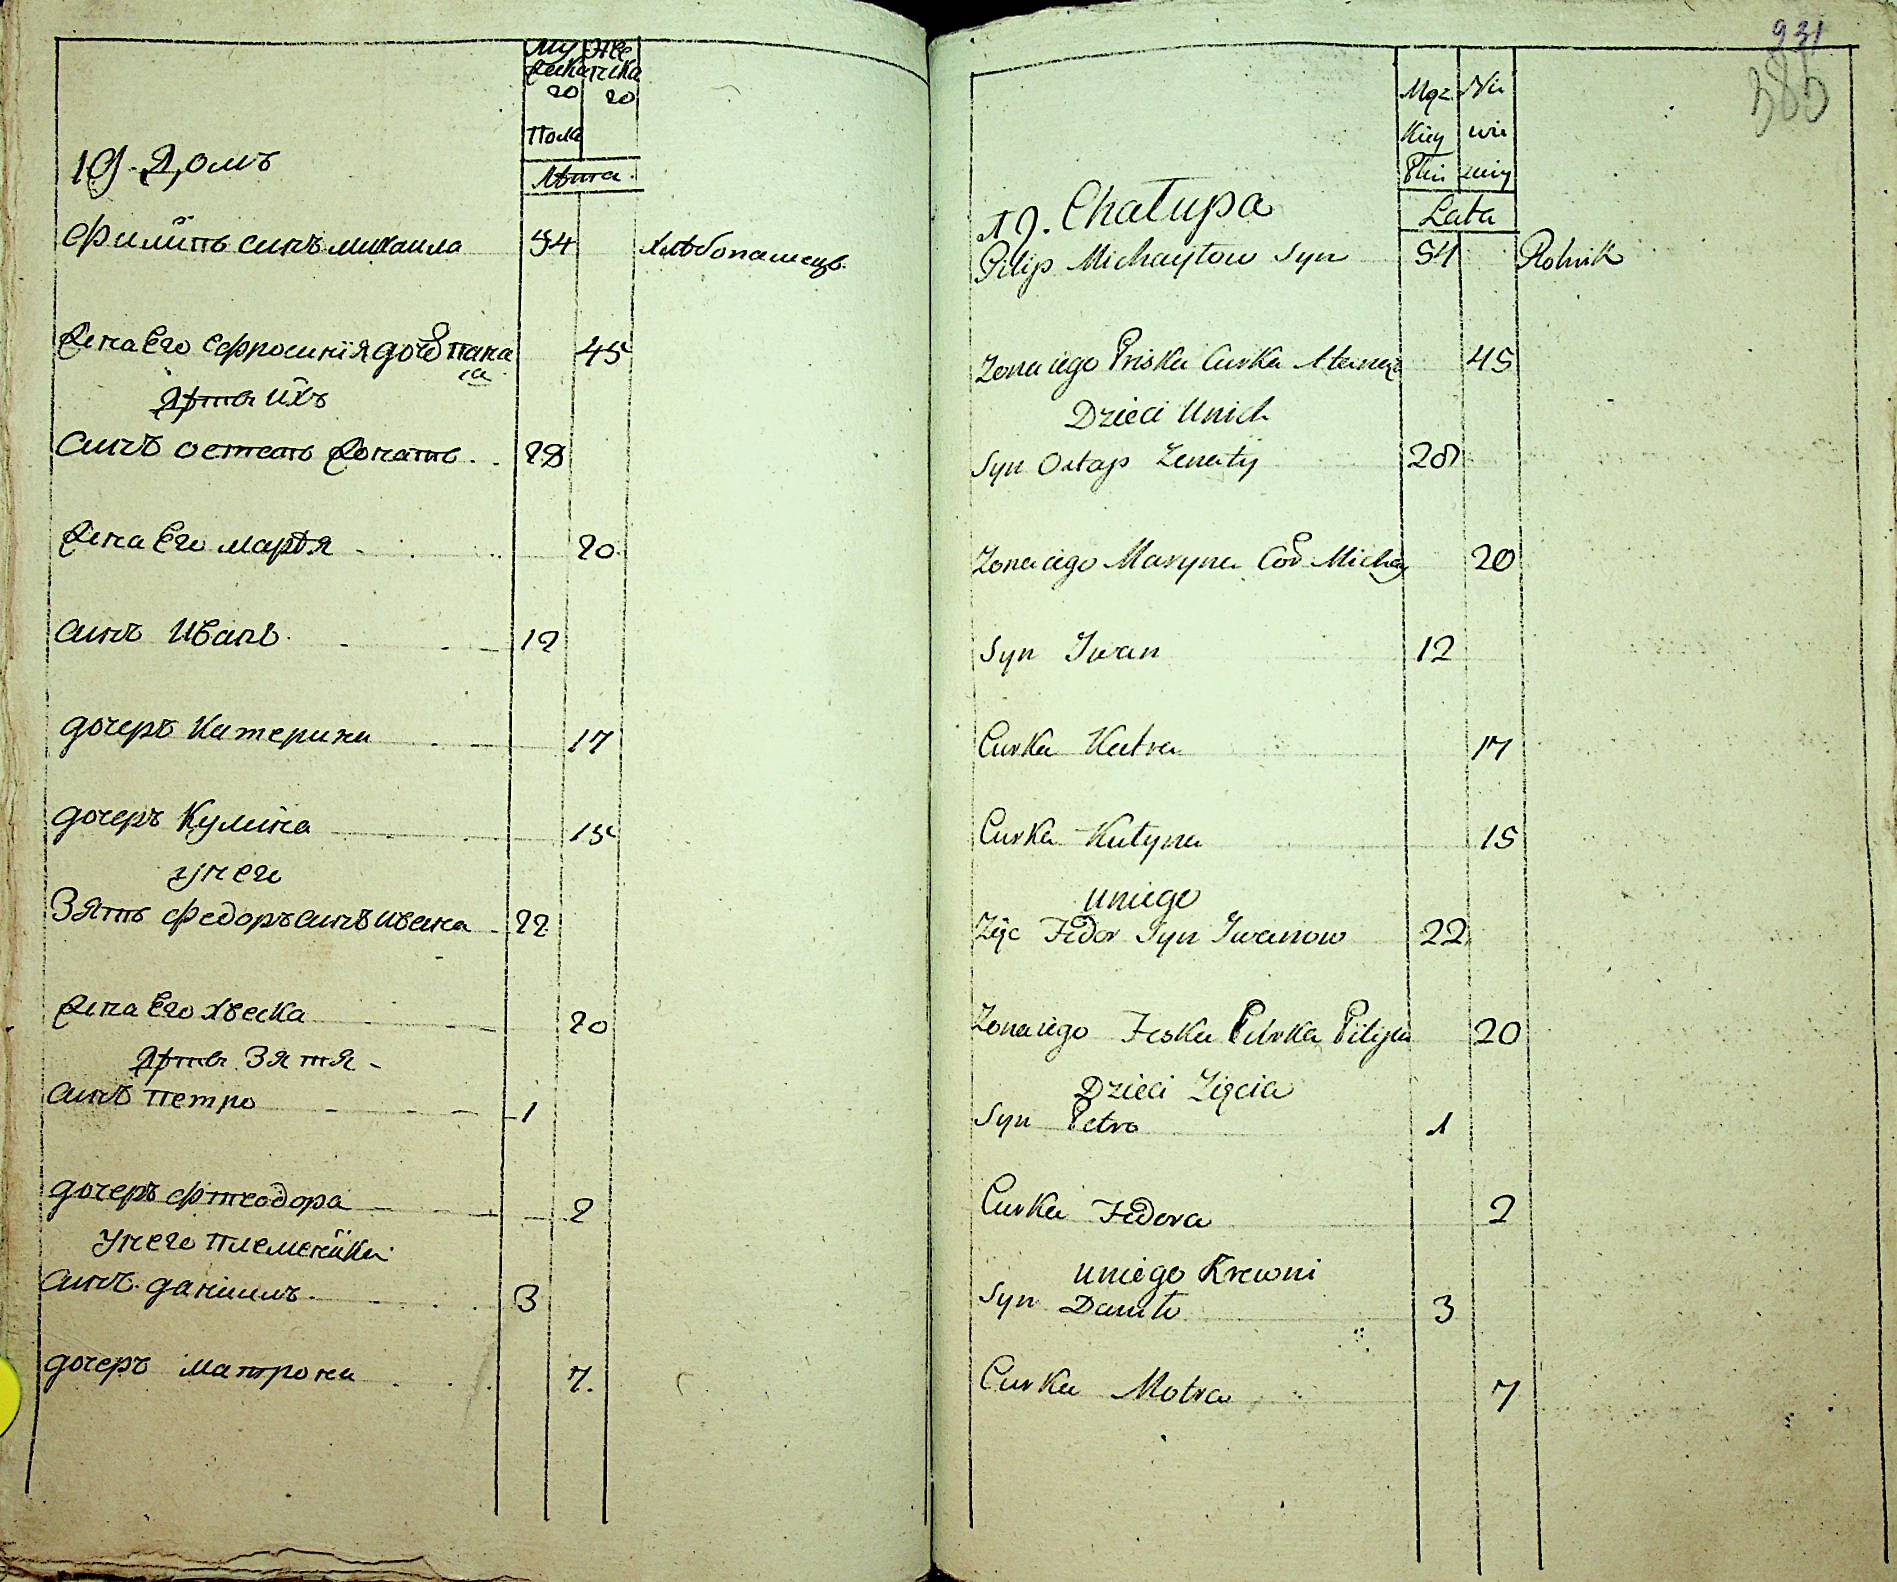 Му Же
жеска нска
го го
пола
Лѣта
19 Домъ
Филїпъ синъ михаила 54 хлѣбопашецъ
Жена Его Ефросинїя доче Пана
са 45
Дѣти ихъ
синъ остапъ Жонатъ 28
Жена Его марья 20
синъ Иванъ 12
дочеръ Катерина 17
дочеръ Кулина 15
у него
Зять федоръ синъ ивана 22
Жена Его хвеска 20
Дѣти Зятя
синъ петро 1
дочеръ фтеодора 2
У него племенїки
синъ даніилъ 3
дочеръ матрона 7
931
385
Męz Nie
Kiey wie
Płci sciey
Lata
19. Chałupa
Pilip Michayłow Syn 54 Rolnik
Zona iego Priska Curka 45
Dzieci Unich
Syn Ostap Zenaty 28
Zona iego Maryna Cor Michay 20
Syn Iwan 12
Curka Katra 17
Curka Kulyna 15
Uniego
Zięc Fedor Syn Iwanow 22
Zona iego Feska Curka Pilipa 20
Dzieci Zięcia
Syn Petro 1
Curka Fedora 2
Uniego Krewni
Syn Daniło 3
Curka Motra 7